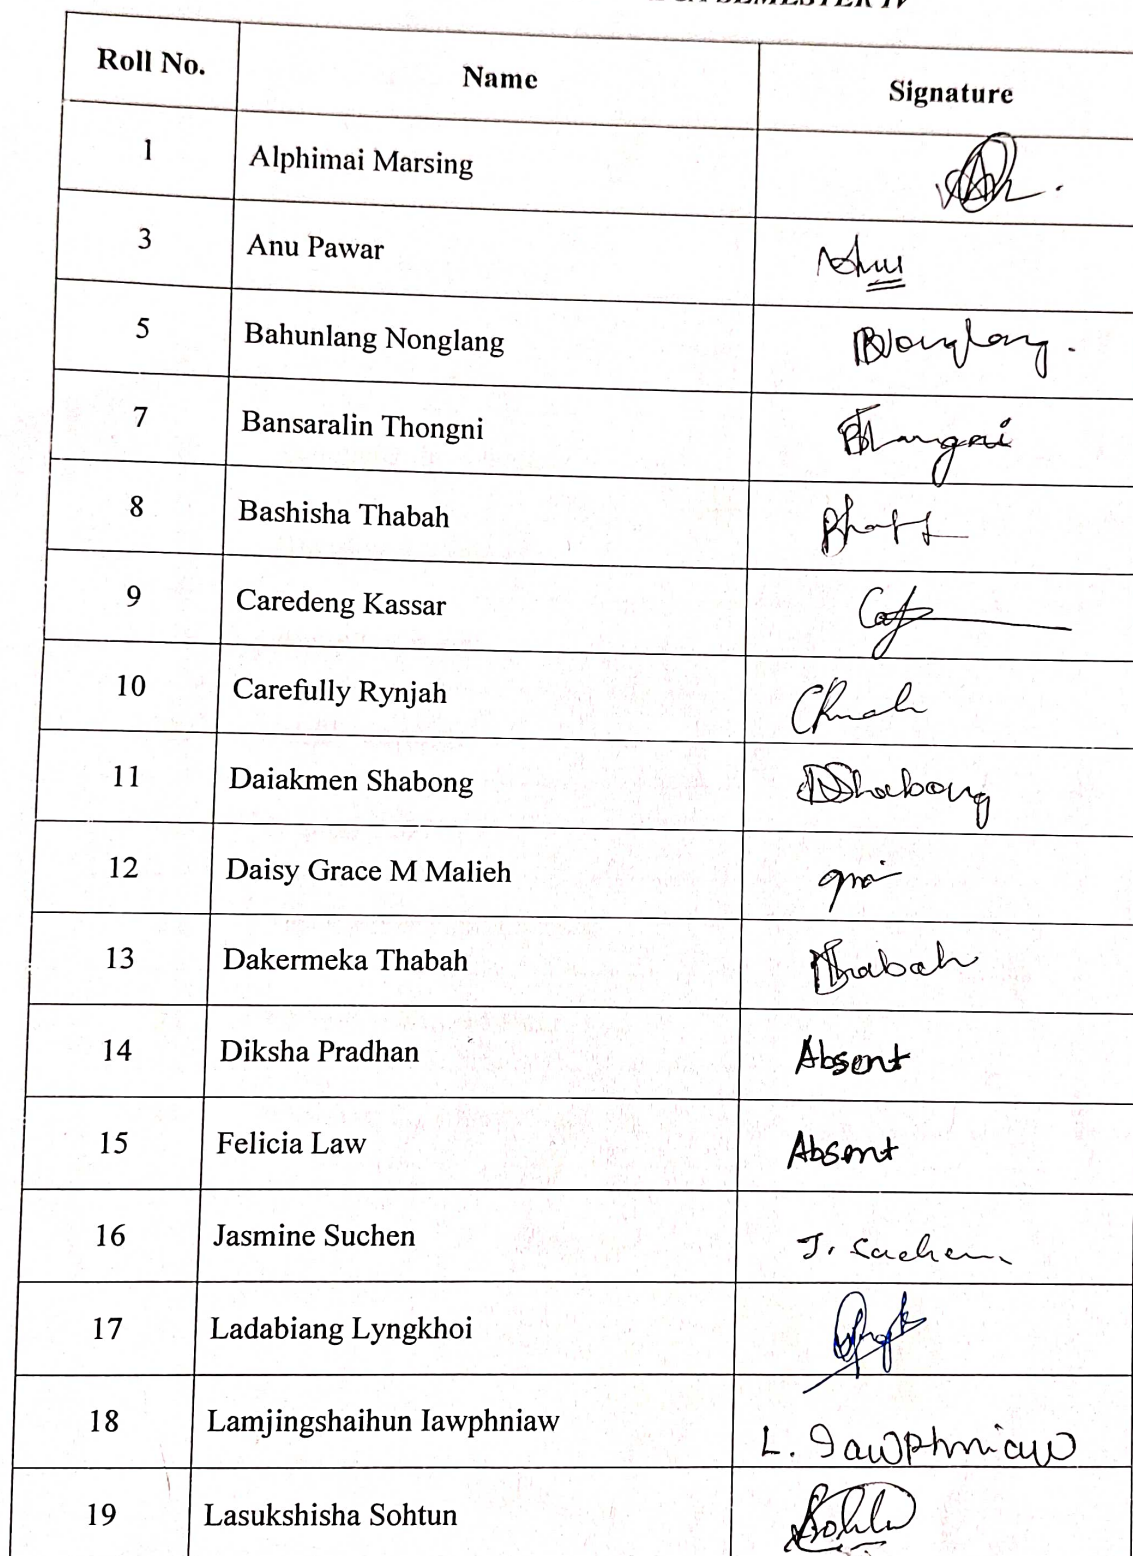 SEMESTER IV
Roll No. Name Signature
1 Alphimai Marsing
3 Anu Pawar
5 Bahunlang Nonglang BNonglang.
7 Bansaralin Thongni
8 Bashisha Thabah
9 Caredeng Kassar
10 Carefully Rynjah
11 Daiakmen Shabong DShabong
12 Daisy Grace M Malieh
13 Dakermeka Thabah DThabah
14 Diksha Pradhan Absent
15 Felicia Law Absent
16 Jasmine Suchen J. Suchen
17 Ladabiang Lyngkhoi
18 Lamjingshaihun Iawphniaw L. Iawphniaw
19 Lasukshisha Sohtun